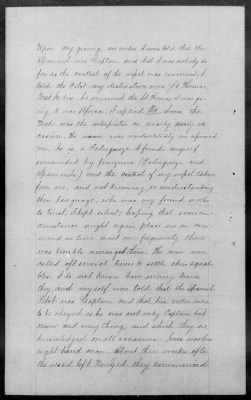 Upon my giving an order I was told that the
Spaniard was Captain and that I was nobody so
far as the control of the vessel was concerned. I
told the Pilot my destination was St Thomas,
West Indies, he answered the St Thomas I was go-
ing to was Africa. I replied
that was the interpreter on nearly every oc-
casion. The name was undoubtedly an assumed
one, he is a Portuguese. I found myself
surrounded by foreigners (Portuguese and
Spaniards) and the control of my vessel taken
from me, and not knowing, or understanding
their language, who was my friend or who
to trust, I kept silent; hoping that some cir-
cumstance might again place me in com-
mand as time went on. frequently there
was trouble amongst them. The men were
called aft several times to settle their squab-
bles. I do not know how many times
they, and myself were told that the Spanish
Pilot was Captain and that his orders were
to be obeyed as he was not only Captain but
owner and everything, and which they ac-
knowledged on all occasions
right hand man. About three weeks after
the vessel left New York they commenced